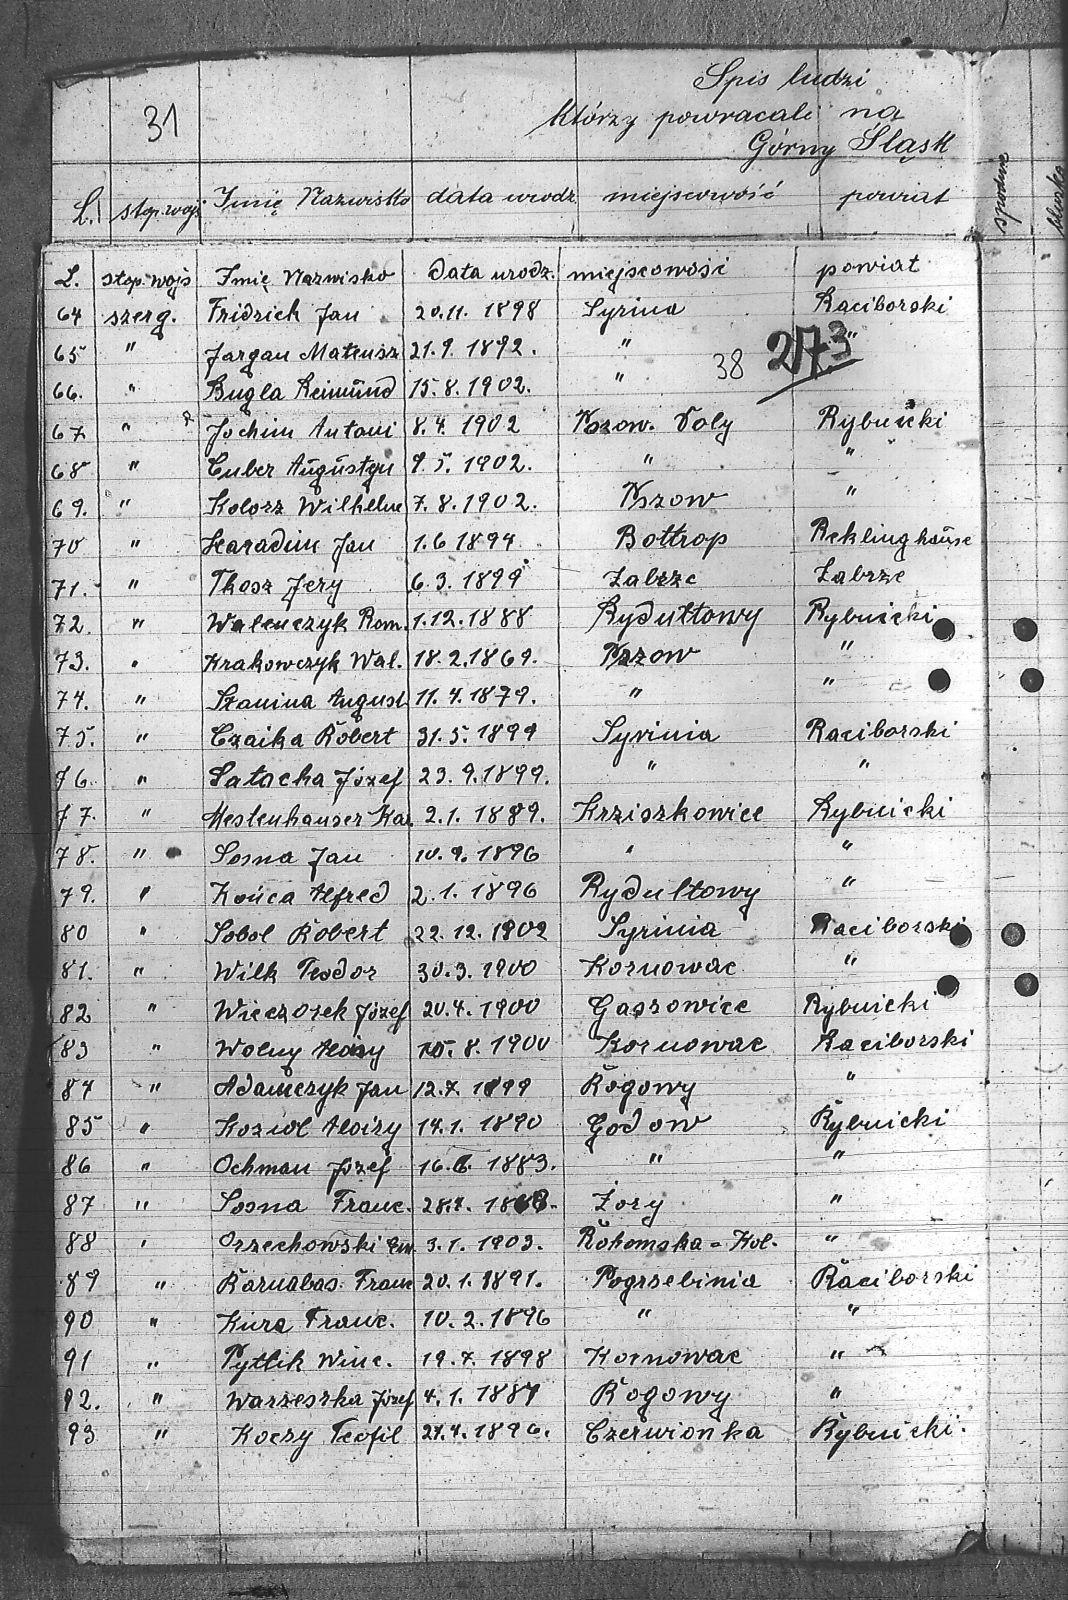 Spis ludzi
31 którzy powracali na
Górny Śląsk
L. stop. wojs Imię Nazwisko data urodz miejscowość powiat
L. stop. wojs Imię Nazwisko data urodz. miejscowość powiat
64 szerg. Fridrich Jan 20.11. 1898 Syrina Raciborski
65 " Jargan Mateusz 21.9. 1892. " "
38 273
66. " Bugla Reimund 15.8.1902. "
67 " Jochim Antoni 8.4. 1902 Pszow. Doly Rybnicki
68 " Cuber Augustyn 9.5. 1902. " "
69. " Kolorz Wilhelm 7.8.1902. Pszow "
70 " Haradim Jan 1.6 1894 Bottrop Reklinghause
71. " Tkosz Jery 6.3. 1899 Zabrze Zabrze
72. " Walenczyk Rom. 1.12.1888 Rydultowy Rybnicki
73. " Krakowczyk Wal. 18.2.1869. Pszow "
74. " Szanina August 11.4.1879. " "
75. " Czaika Robert 31.5.1899 Syrinia Raciborski
76. " Satacha Józef 23.9.1899. " "
77. " Mestenhauser Kar. 2.1.1889. Krziszkowice Rybnicki
78. " Sosna Jan 10.9.1896 " "
79. " Końca Alfred 2.1.1896 Rydultowy "
80 " Sobol Robert 22.12.1902 Syrinia Raciborski
81. " Wilk Teodor 30.3.1900 Kornowac "
82 " Wieczorek Józef 20.4.1900 Gaszowice Rybnicki
83 " Wolny Aloizy 15.8.1900 Kornowac Raciborski
84 " Adamczyk Jan 12.7.1899 Rogowy "
85 " Koziol Aloizy 14.1.1890 Godow Rybnicki
86 " Ochman Józef 16.6.1883. " "
87 " Sosna Franc. Żory "
88 " Orzechowski 3.1.1903. Rohomska - Kol. "
89 " Barnabas Franc 20.1.1891. Pogrzebinia Raciborski
90 " Kura Franc. 10.2.1896 " "
91 " Pytlik Winc. 19.7.1898 Kornowac "
92. " Warzeszka Józef 4.1.1887 Rogowy "
93 " Koczy Teofil 27.4.1896. Czerwionka Rybnicki.
spodnie
bluzka